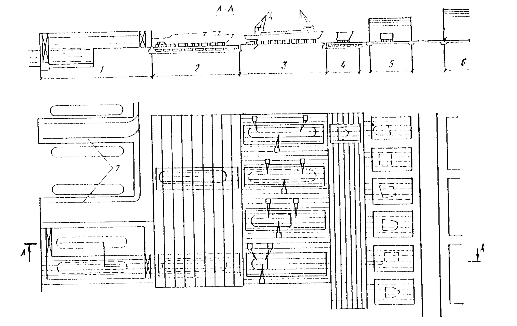 А-А
1 2 3 4 5 6
7
А А